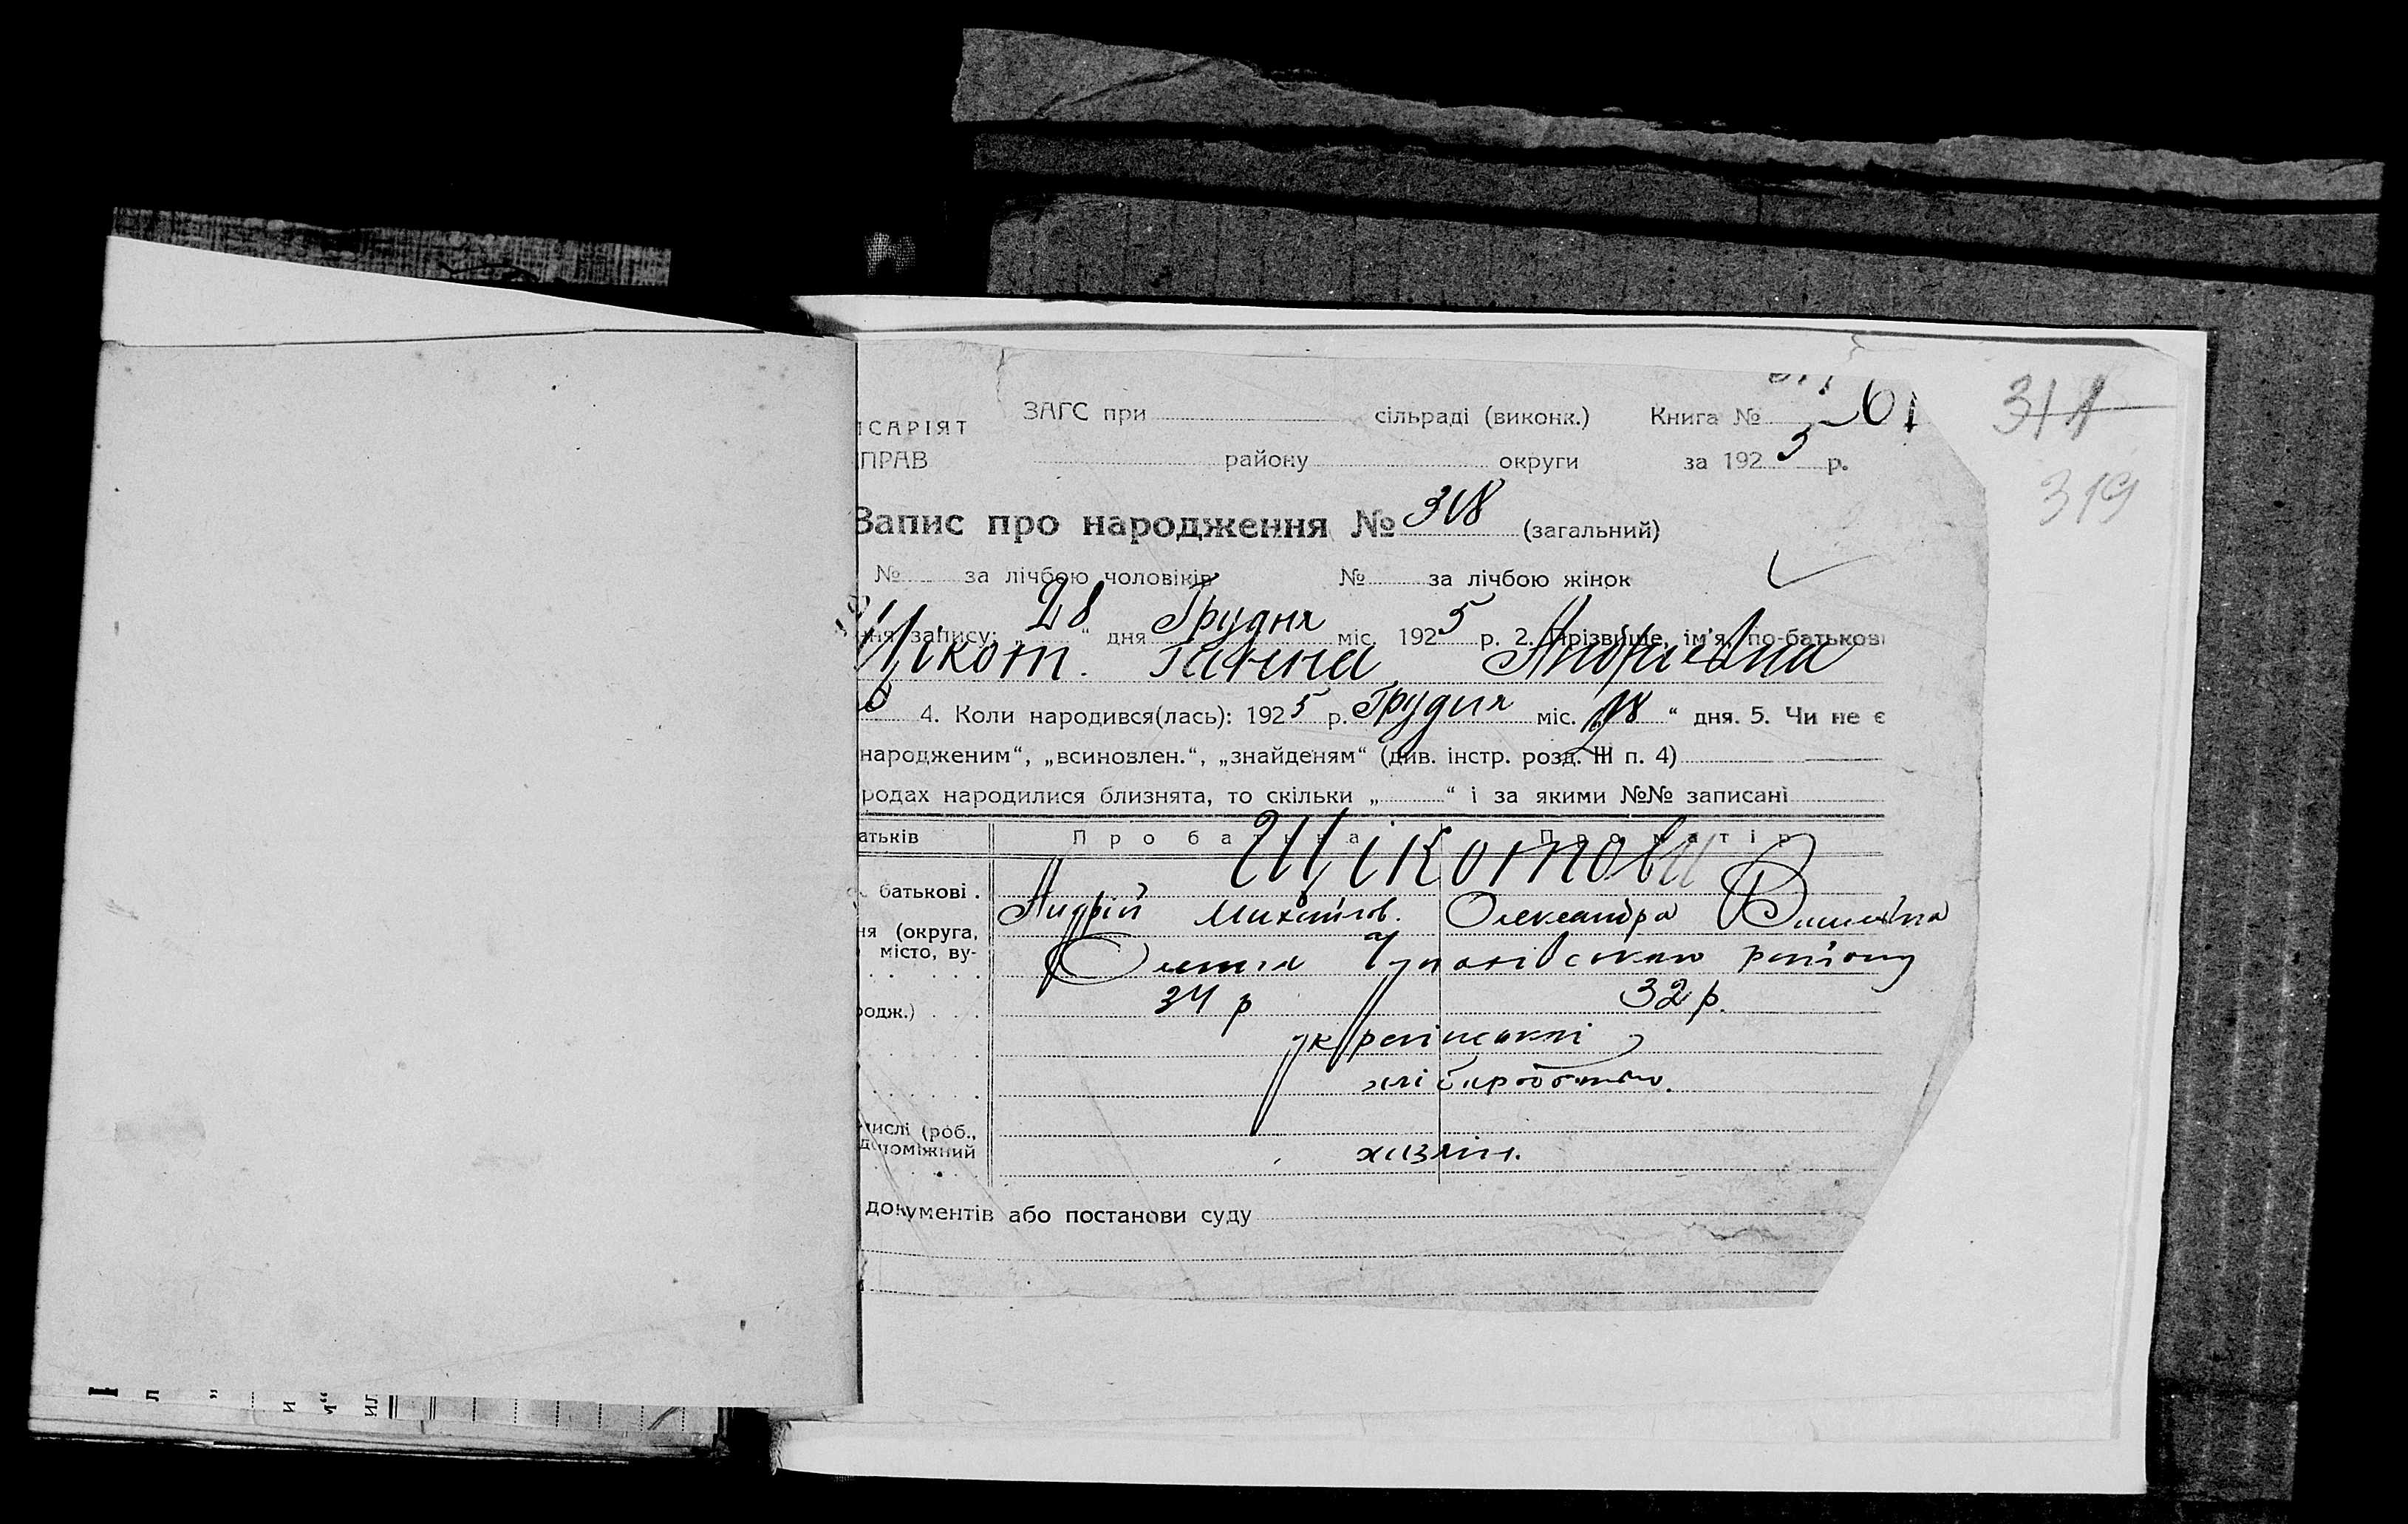 ЗАГС при сільраді (виконк.) Книга №
311
ІСАРІЯТ
ПРАВ району округи за 1925 р.
319
Запис про народження № 318 (загальний)
№ за лічбою чоловіків № за лічбою жінок
ння запису: „28“ дня Грудня міс. 1925 р. 2. Прізвище, ім'я, по-батькові
Щікот. Ганна Андріевна
4. Коли народився(лась): 1925 р. Грудня міс. 28“ дня. 5. Чи не є
народженим“, „всиновлен.“, „знайденям“ (див. інстр. розд. III п. 4)
родах народилися близнята, то скільки „ “ і за якими №№ записані
атьків Про батька Про матір
Щікотови
батькові . Андрій Михайлов. Олександра
ня (округа,
місто, ву- району
родж.) . . . 34 р 32 р.
українські
хлібороботво.
числі (роб.,
допоміжний хазяін.
документів або постанови суду